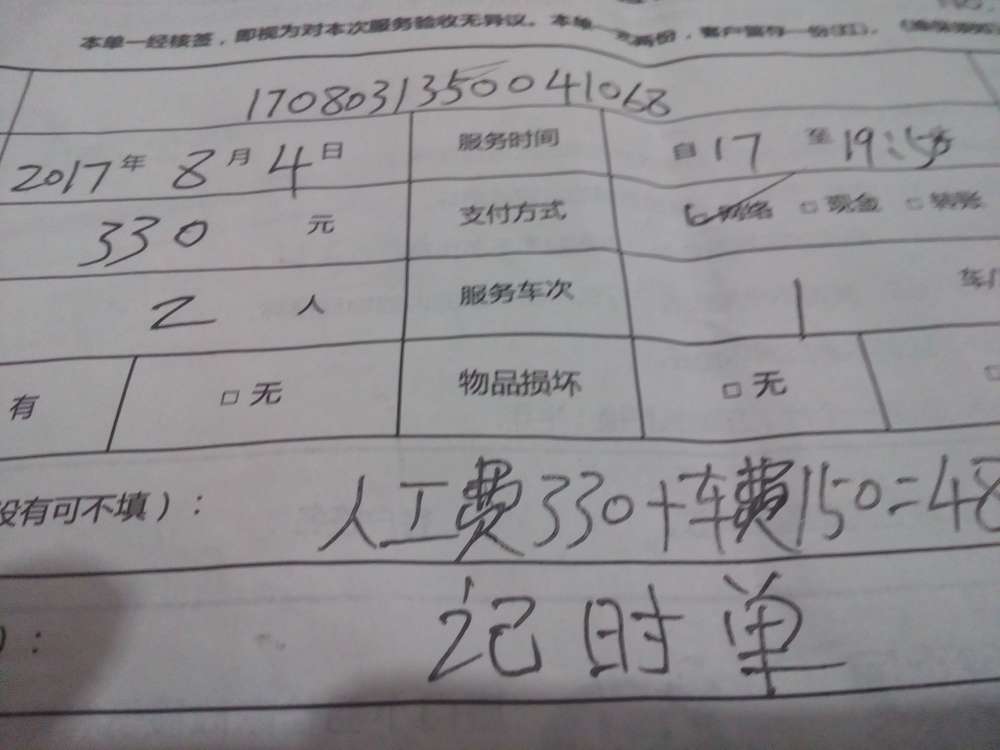 本单一经核签，即视为对本次服务验收无异议。本单一式两份，客户留存一份(红)。
1708031350041068
2017年8月4日 服务时间 自17至19:55
330元 支付方式 网络 □现金 □转账
2人 服务车次 1 车
有 □无 物品损坏 □无 □
没有可不填）： 人工费330+车费150=48
）： 记时单